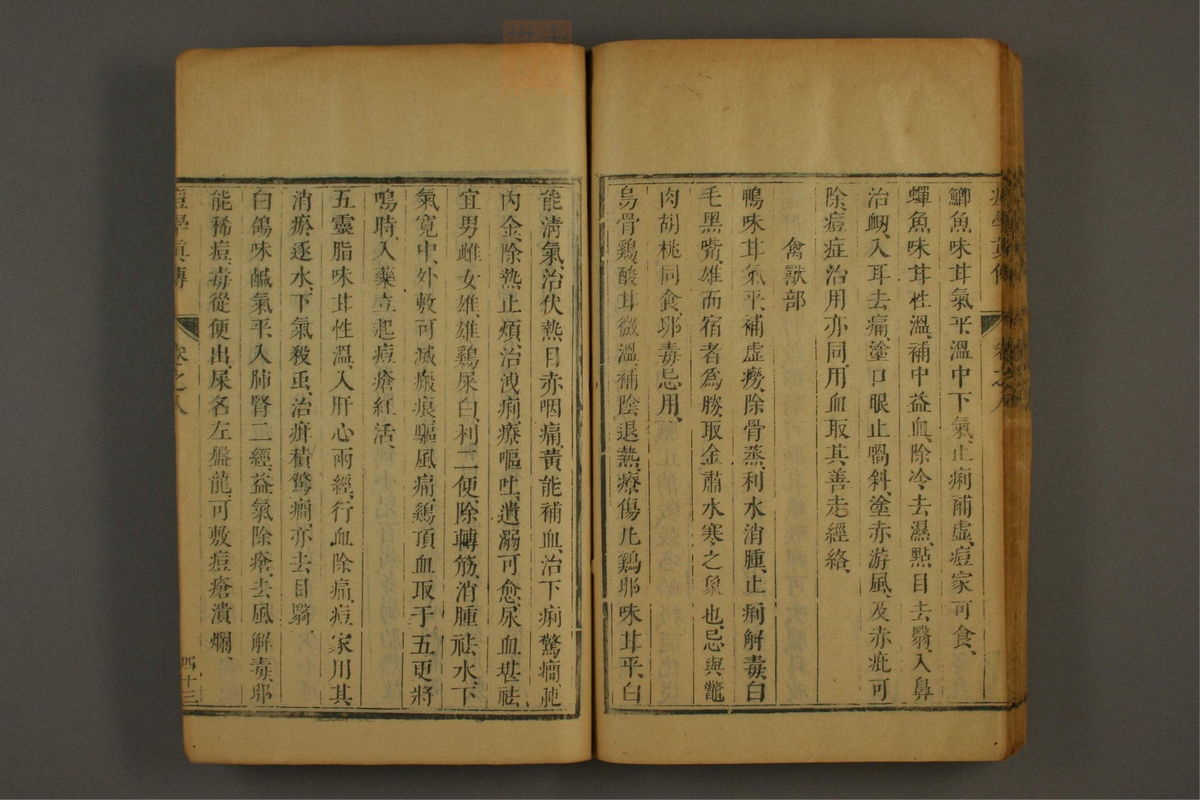 痘學眞傳 卷之八
鯽魚味甘氣平、溫中下氣、止痢補虛、痘家可食、
蟬魚味甘性溫、補中益血、除冷、去濕、點目去翳、入鼻
治衂、入耳去痛、塗口眼止喎斜、塗赤游風、及赤疵可
除、痘症治用亦同、用血取其善走經絡、
禽獸部
鴨味甘氣平、補虛癆、除骨蒸、利水消腫、止痢解毒、白
毛黑嘴、雄而宿者爲勝、取金肅水寒之象也、忌與鼈
肉胡桃同食、卵毒忌用、
烏骨鷄酸甘微溫、補陰退熱、療傷、凡鷄卵味甘平、白
能淸氣、治伏熱目赤咽痛、黃能補血、治下痢驚癎、肶
內金、除熱止煩、治洩痢、療嘔吐、遺溺可愈、尿血堪祛、
宜男雌女雄、雄鷄屎白、利二便、除轉筋、消腫祛水、下
氣寬中、外敷可滅瘢痕、驅風痛、鷄頂血取于五更將
鳴時、入藥立起痘瘡紅活、
五靈脂味甘性溫、入肝心兩經、行血除痛、痘家用其
消瘀、逐水、下氣殺䖝、治疳積驚癎、亦去目翳、
白鴿味鹹氣平、入肺腎二經、益氣除瘡、去風解毒、卵
能稀痘、毒從便出、屎名左盤龍、可敷痘瘡潰爛、
痘學眞傳 卷之八 四十三